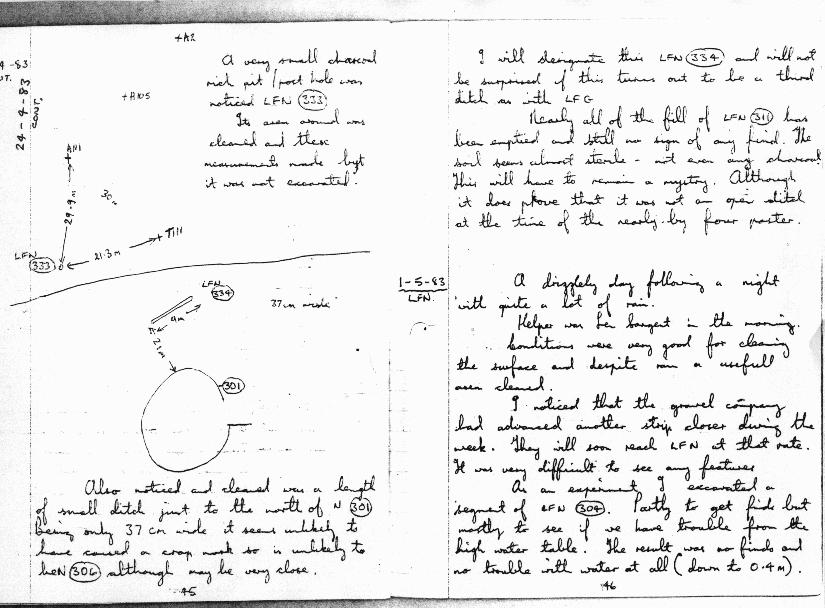 24-4-83
CONT.
+A2
A very small charcoal
rich pit / post hole was
noticed LFN 333
+A105
Its area around was
cleaned and these
measurements made byt
it was not excavated.
AN1
29.9m
30
21.3m
T111
LFN
333
LFN
334
37cm wide
4m
21m
301
Also noticed and cleaned was a length
of small ditch just to the north of N 301
being only 37 cm wide it seems unlikely to
have caused a crop mark so is unlikely to
be N 306 although may be very close.
45
I will designate this LFN 334 and will not
be surprised if this turns out to be a third
ditch as with LFG
Nearly all of the fill of LFN 311 has
been emptied and still no sign of any find. The
soil seems almost sterile - not even any charcoal
This will have to remain a mystery. Although
it does prove that it was not an open ditch
at the time of the nearby four poster.
1-5-83
LFN.
A drizzlely day following a night
with quite a lot of rain.
Helper was Len Sargent in the morning.
Conditions were very good for cleaning
the surface and despite rain a usefull
area cleaned.
I noticed that the gravel company
had advanced another strip closer during the
week. They will soon reach LFN at that rate.
It was very difficult to see any features
As an experiment I excavated a
segment of LFN 304. Partly to get finds but
mostly to see if we have trouble from the
high water table. The result was no finds and
no trouble with water at all (down to 0.4m).
46